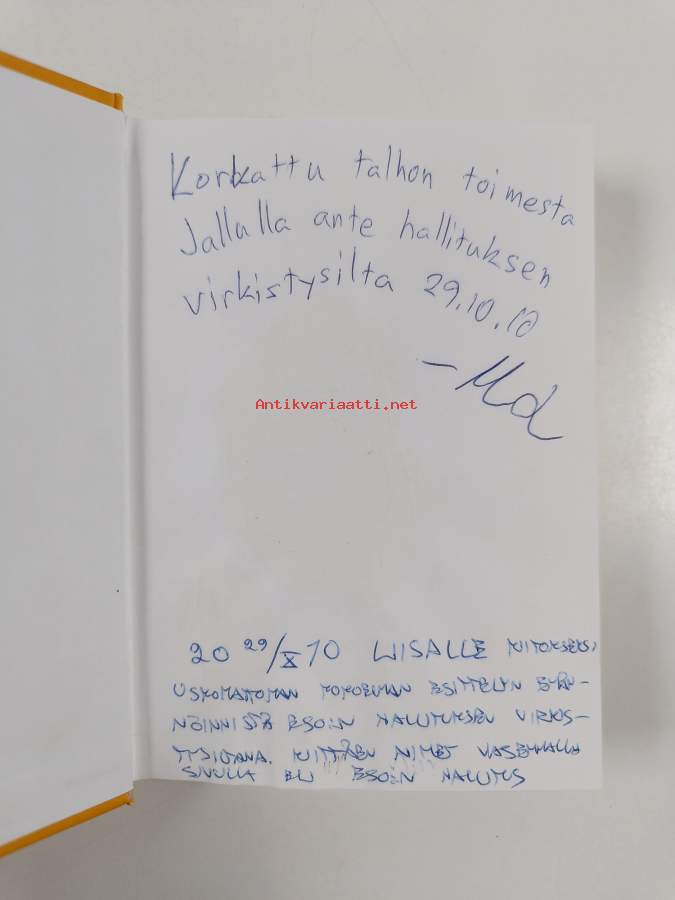 Korkattu talhon toimesta
Jallulla ante hallituksen
virkistysilta 29.10.10
Antikvariaatti.net
20 29/X 10 LIISALLE KIITOKSEKSI
USKOMATTOMAN KOKOELMAN ESITTELYN
ESCO:N HALLITUKSEN VIRKIS-
KIITTÄEN NIMET VASEMMALLA
SIVULLA ELI HALLITUS